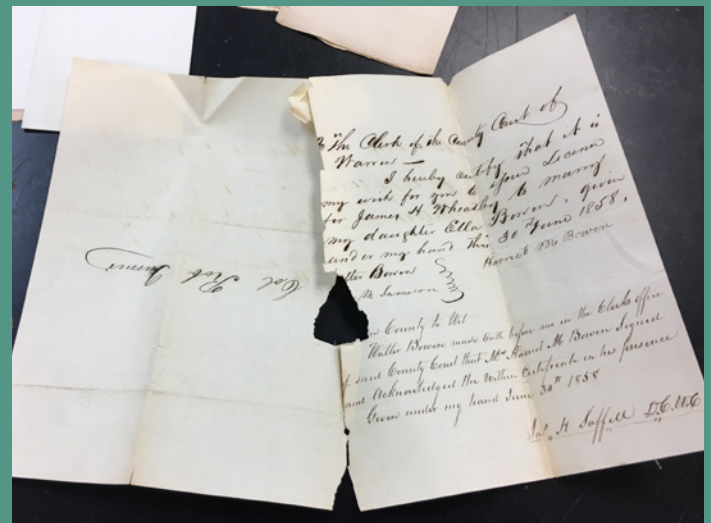 To the Clerk of the County Court of
Warren —
I hereby certify that it is
my wish for you to issue License
for James H Wheatley to marry
my daughter Ella Bowen, given
under my hand this 30th June 1858,
Harriet M Bowen
Bowen
M Jameson
County to Wit
Walter Bowen made Oath before me in the Clerks office
of said County Court that Mrs Harriet M Bowen Signed
and Acknowledged the Within Certificate in his presence
Given under my hand June 30th 1858
Jas. H Saffell D.C.W.C
Col Rob Turner